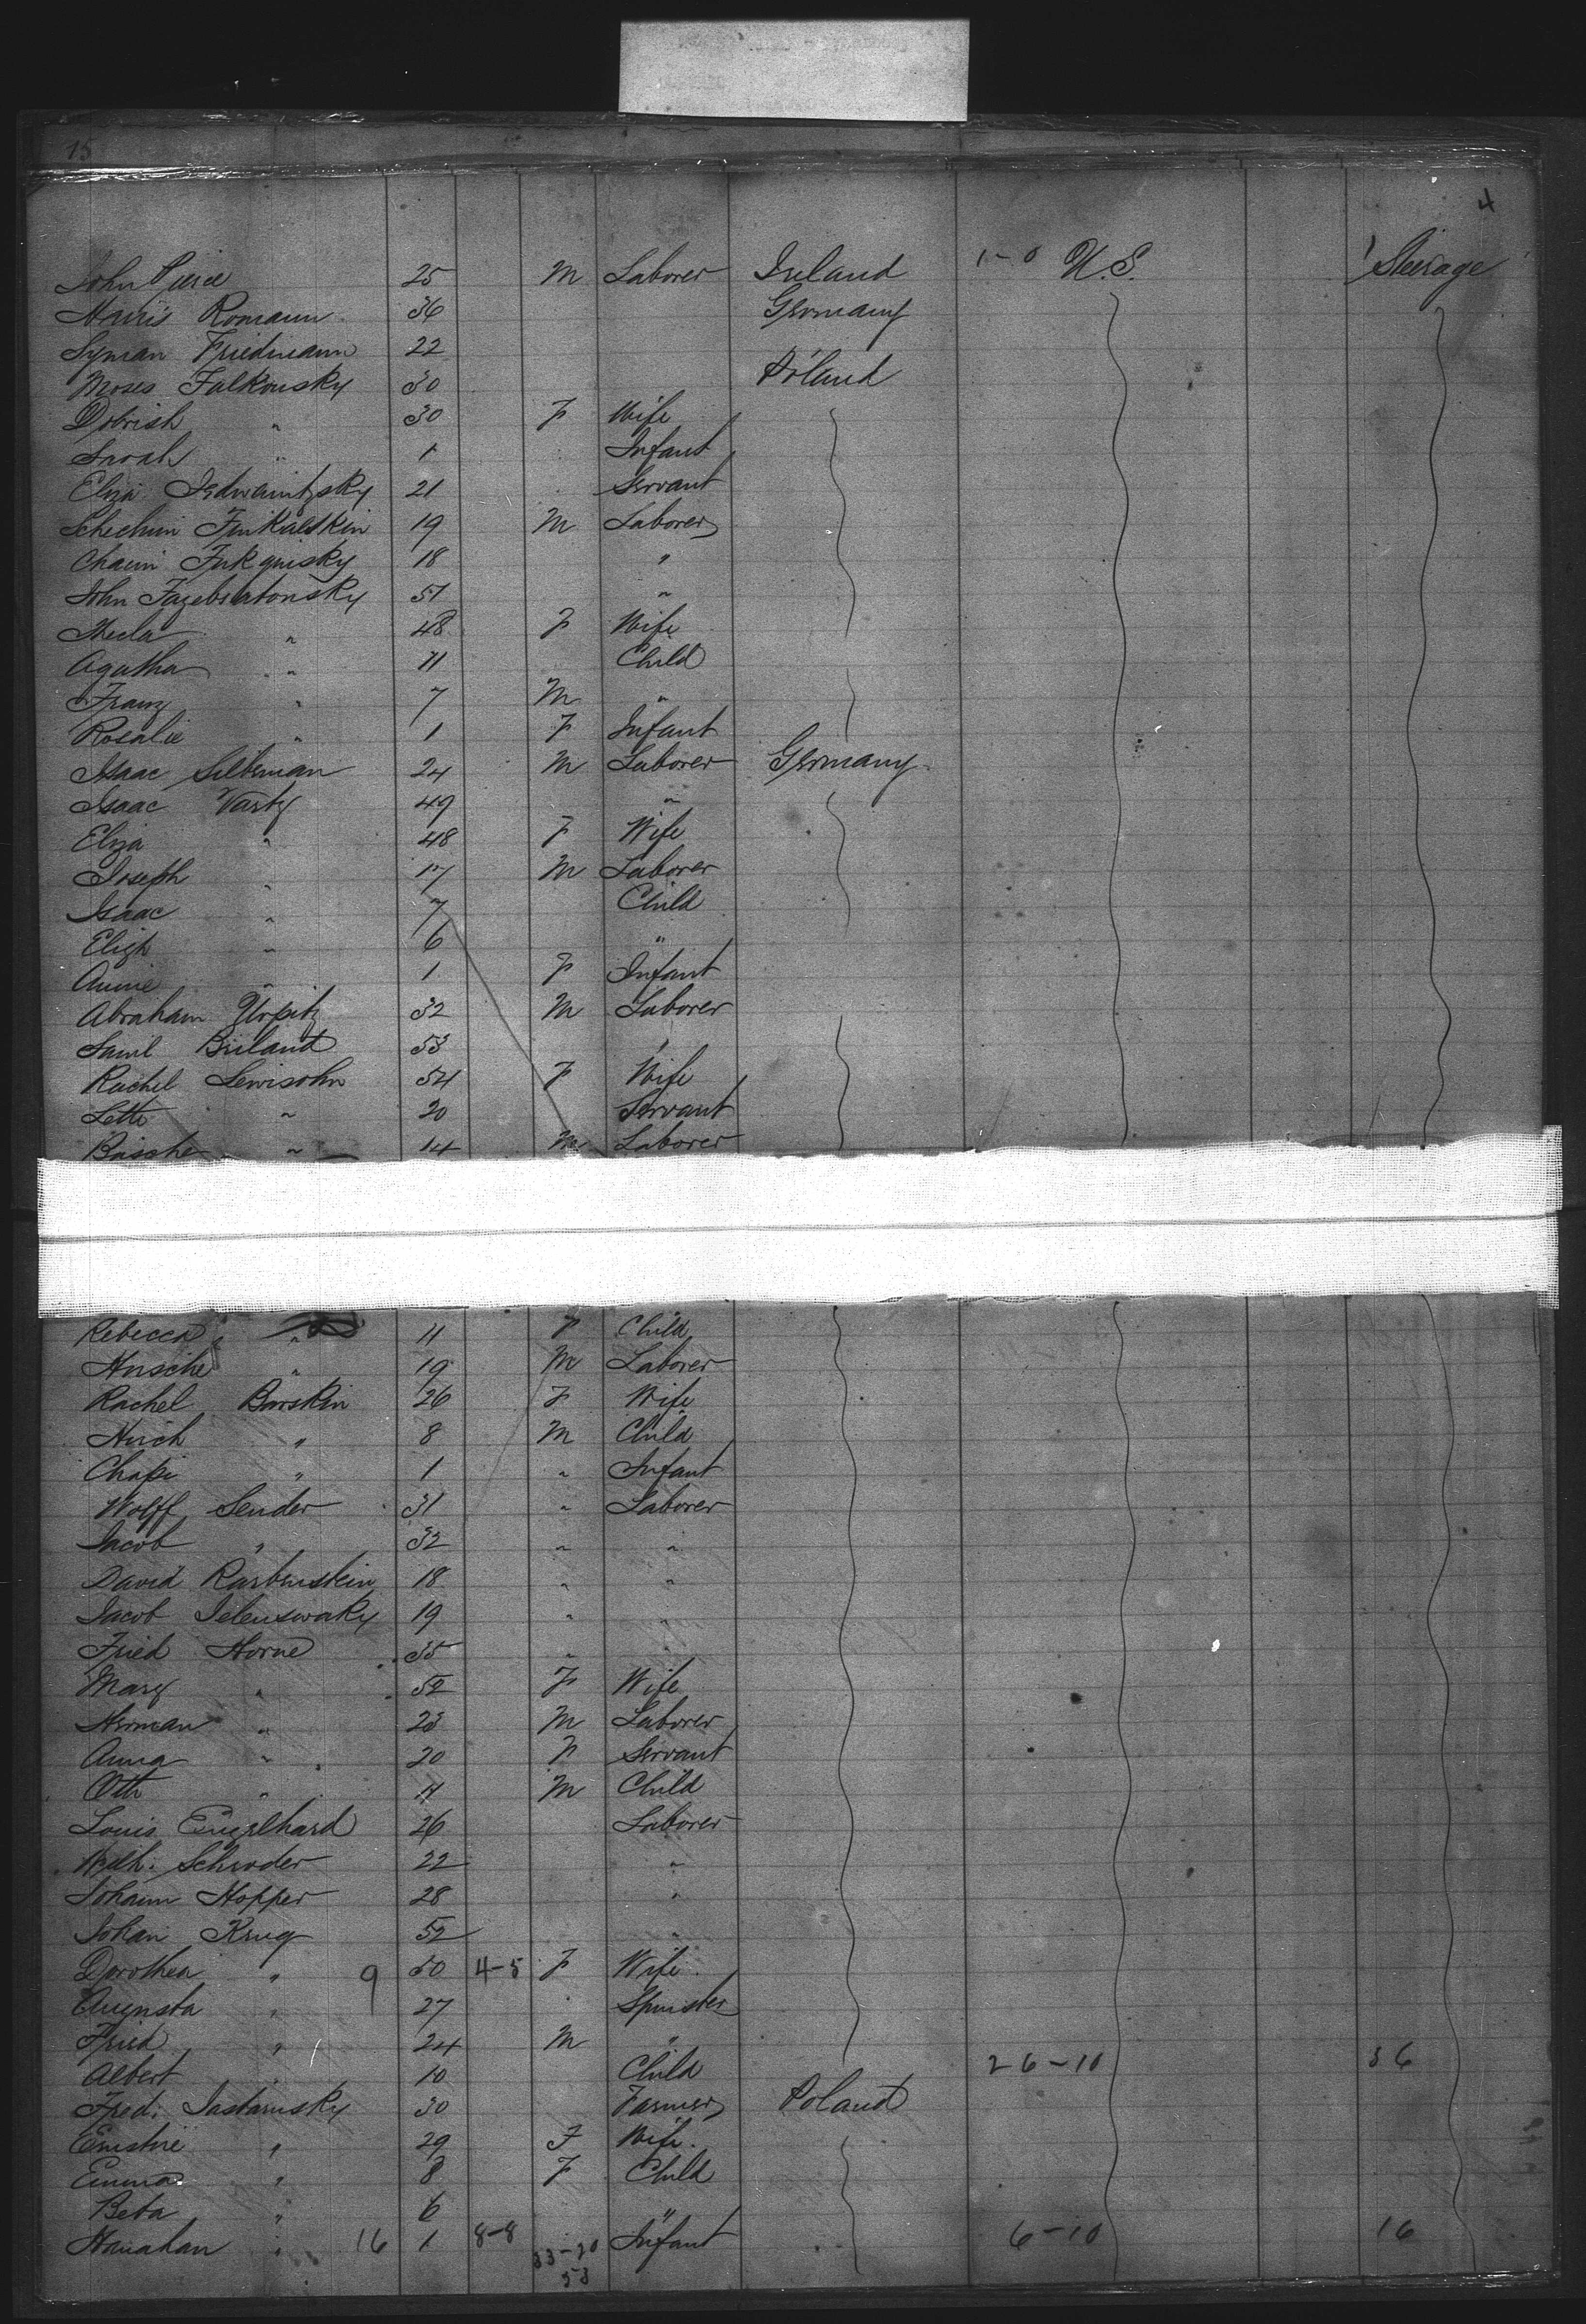 15
4
John Pierce 25 M Laborer Ireland 1-0 U.S. Steerage
Harris Romann 36 Germany
Lyman Friedmann 22
Moses Falkousky 30 Poland
Dobrish " 30 F Wife
Sarah " 1 Infant
Eliza 21 Servant
19 M Laborer
Chaim 18 "
John 51 "
Thecla " 48 F Wife
Agatha " 11 Child
Franz " 7 M "
Rosalie " 1 F Infant
Isaac Silberman 24 M Laborer Germany
Isaac Varty 49 "
Eliza " 48 F Wife
Joseph " 17 M Laborer
Isaac " 7 Child
Eligh " 6 "
Annie " 1 F Infant
Abraham 32 M Laborer
Saml Briland 53 "
Rachel Lewisohn 54 F Wife
Lette " 20 Servant
14 M Laborer
Rebecca " 11 F Child
Hirsche " 19 M Laborer
Rachel Barskin 26 F Wife
Hirch " 8 M Child
Chapi " 1 " Infant
Wolff Sender 31 " Laborer
Jacob " 32 " "
David 18 " "
Jacob 19 " "
Fried Horne 55 " "
Mary " 52 F Wife
Herman " 23 M Laborer
Anna " 20 F Servant
Otto " 11 M Child
Louis Engelhard 26 Laborer
Wilh. Schroder 22 "
Johann Hopper 28 "
Johan Krug 52 "
Dorothea " 9 50 4-5 F Wife
Augusta " 27 " Spinster
Fried " 24 M "
Albert " 10 Child 26-10 36
Fred. Jastarnsky 30 Farmer Poland
" 29 F Wife
Emma " 8 F Child
Beta " 6 "
Hanahan " 16 1 8-8 Infant 6-10 16
33-20
53